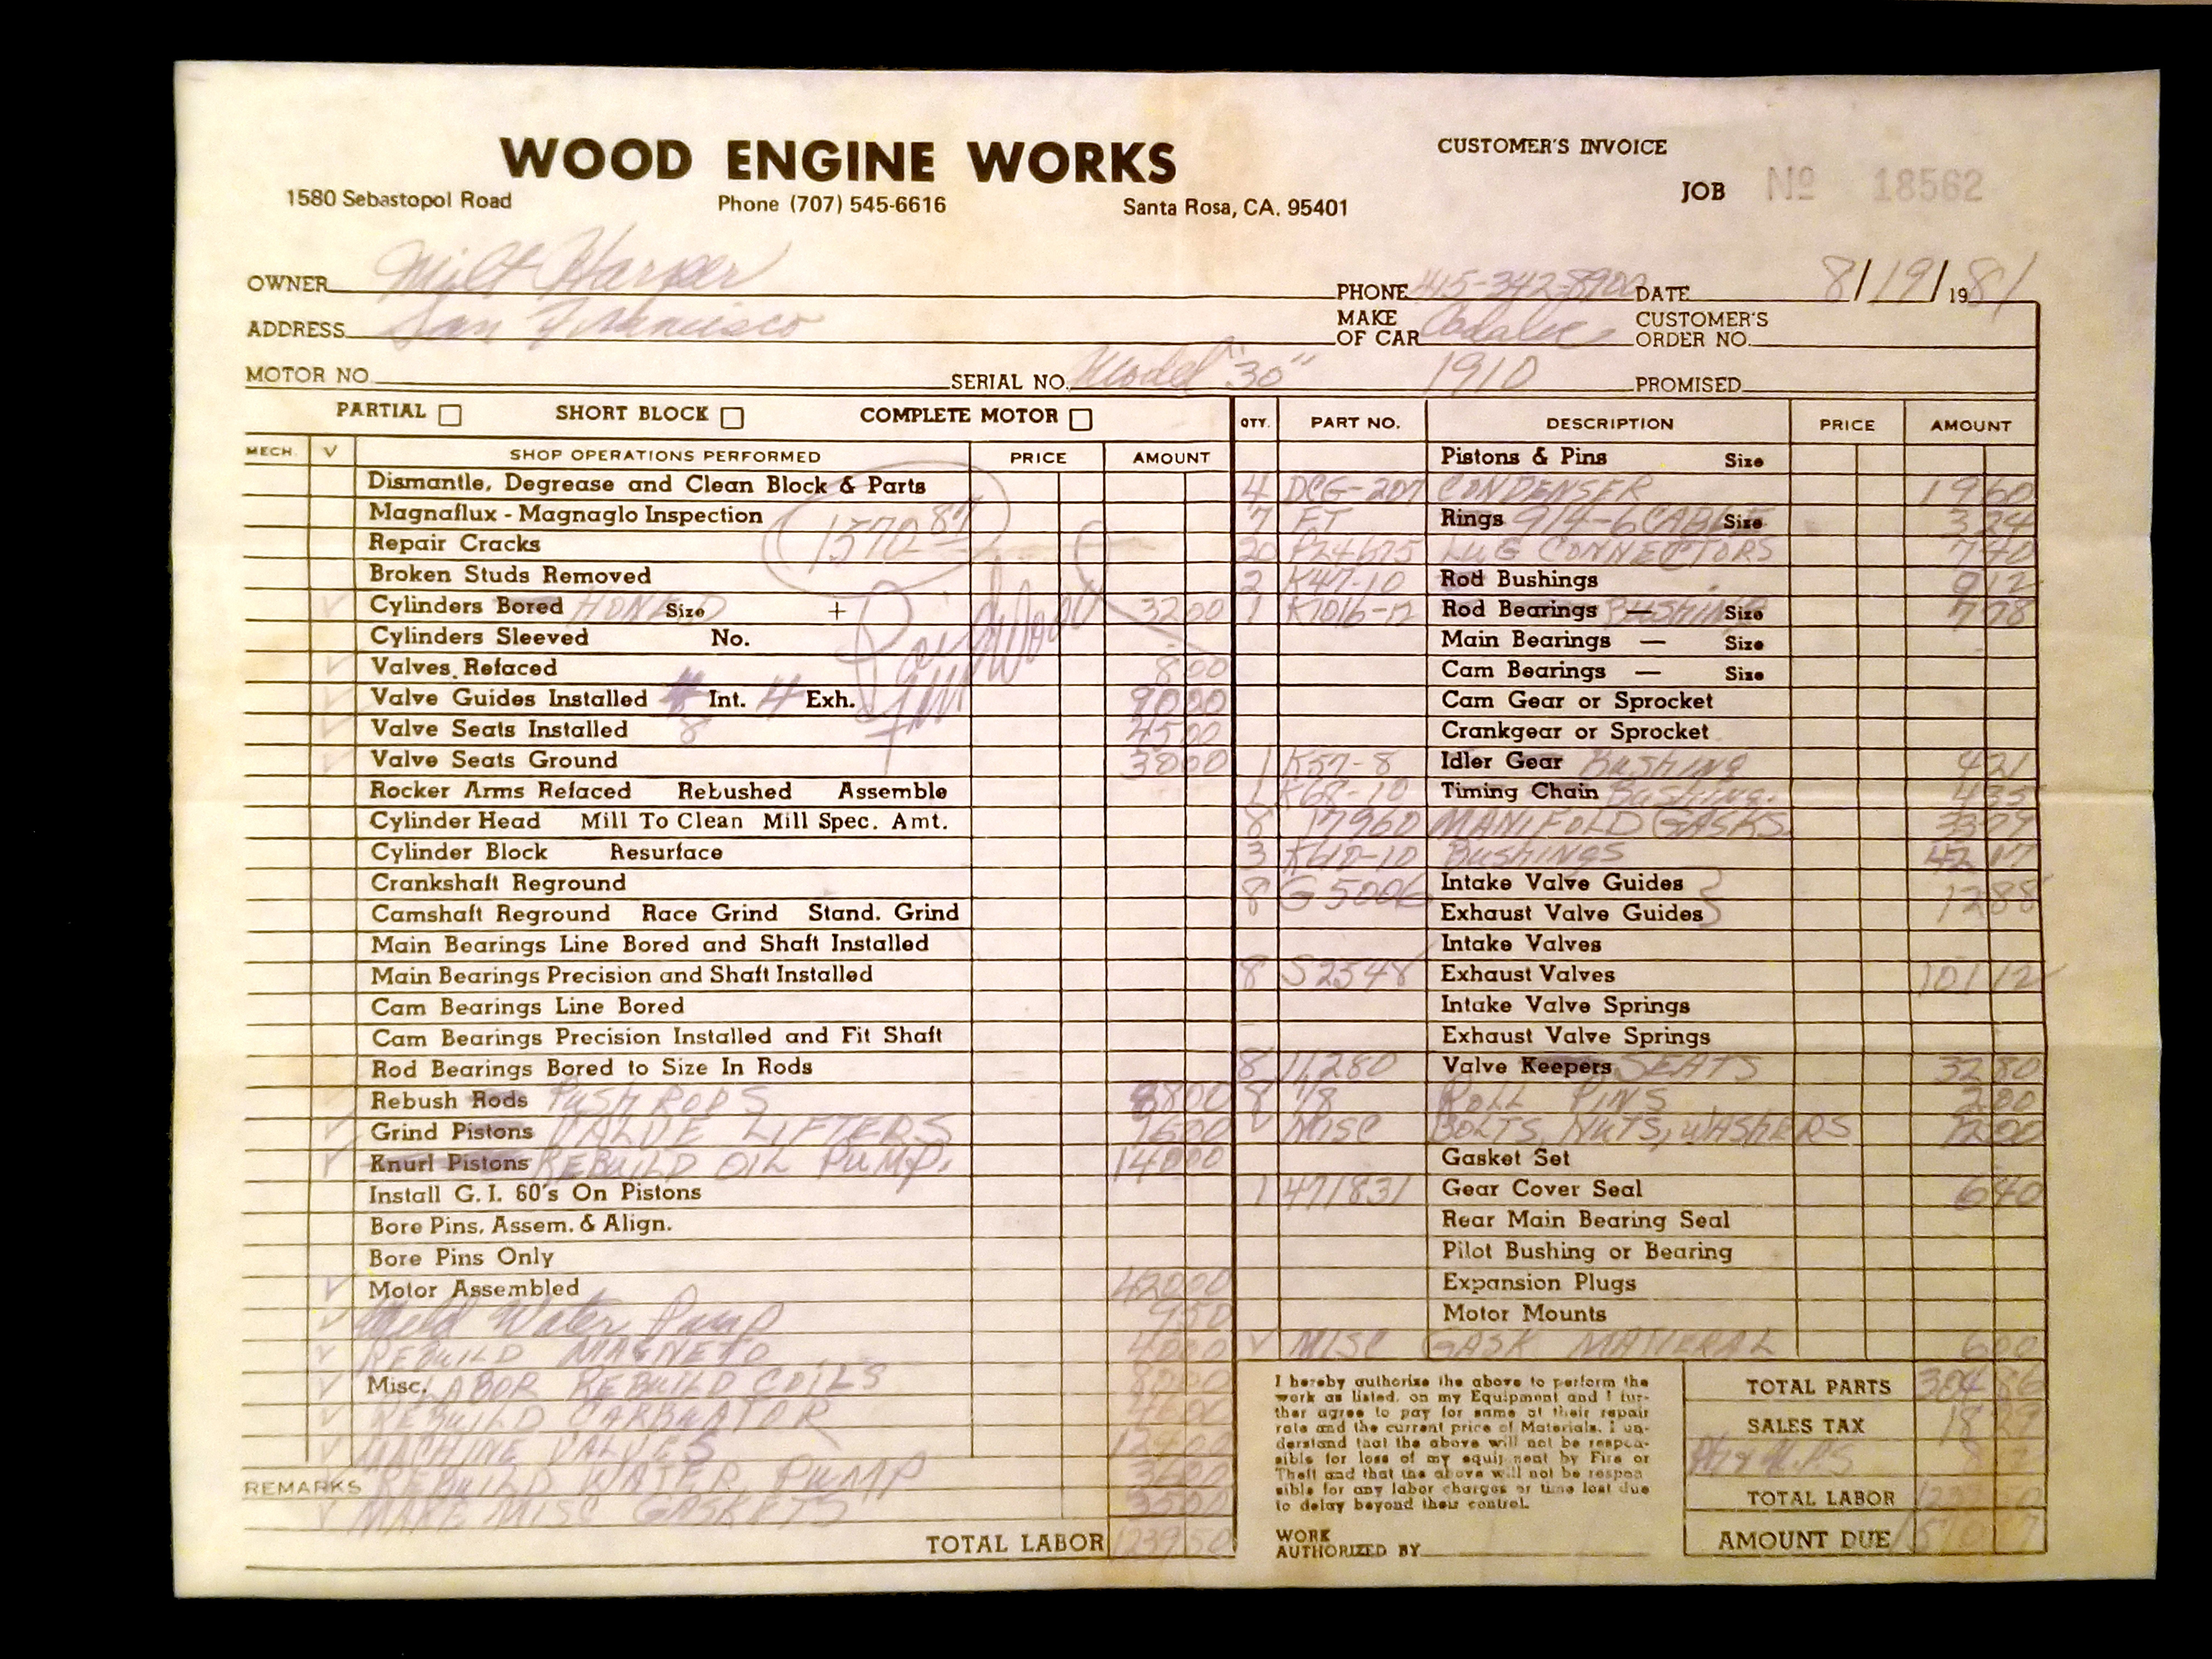 WOOD ENGINE WORKS
1580 Sebastopol Road Phone (707) 545-6616 Santa Rosa, CA. 95401
CUSTOMER'S INVOICE
JOB Nº 18562
OWNER Milt Harper PHONE 415-342-8900 DATE 8/19/1981
ADDRESS San Francisco MAKE OF CAR CUSTOMER'S ORDER NO.
MOTOR NO. SERIAL NO. Model "30" 1910 PROMISED
PARTIAL SHORT BLOCK COMPLETE MOTOR
MECH. √ SHOP OPERATIONS PERFORMED PRICE AMOUNT
Dismantle, Degrease and Clean Block & Parts
Magnaflux - Magnaglo Inspection 1570 87
Repair Cracks
Broken Studs Removed
√ Cylinders Bored HONED Size + 3200
Cylinders Sleeved No.
√ Valves Refaced 800
√ Valve Guides Installed Int. 4 Exh. 9000
√ Valve Seats Installed 8 4500
√ Valve Seats Ground 3000
Rocker Arms Refaced Rebushed Assemble
Cylinder Head Mill To Clean Mill Spec. Amt.
Cylinder Block Resurface
Crankshaft Reground
Camshaft Reground Race Grind Stand. Grind
Main Bearings Line Bored and Shaft Installed
Main Bearings Precision and Shaft Installed
Cam Bearings Line Bored
Cam Bearings Precision Installed and Fit Shaft
Rod Bearings Bored to Size In Rods
√ Rebush Rods PUSH RODS
√ Grind Pistons VALVE LIFTERS
√ Knurl Pistons REBUILD OIL PUMP. 14000
Install G. I. 60's On Pistons
Bore Pins, Assem. & Align.
Bore Pins Only
√ Motor Assembled 42000
√ Weld Water Pump 950
√ REBUILD MAGNETO 4000
√ Misc. LABOR REBUILD COILS 8000
√ REBUILD CARBUATOR 4600
√ MACHINE VALVES 12400
REMARKS REBUILD WATER PUMP 3600
√ MAKE MISC GASKETS 3500
TOTAL LABOR 1239 50
QTY. PART NO. DESCRIPTION PRICE AMOUNT
Pistons & Pins Size
4 DCG-207 CONDENSER 1960
7 FT Rings 914-6 CABLE Size 324
20 LUG CONNECTORS 740
2 K47-10 Rod Bushings 912
1 K1016-12 Rod Bearings — BUSHING Size 778
Main Bearings — Size
Cam Bearings — Size
Cam Gear or Sprocket
Crankgear or Sprocket
1 K57-8 Idler Gear Bushing 421
1 K68-10 Timing Chain Bushing. 435
8 17960 MANIFOLD GASKS.
3 K618-10 BUSHINGS
8 G5006 Intake Valve Guides 1288
Exhaust Valve Guides
Intake Valves
8 S2548 Exhaust Valves 101 12
Intake Valve Springs
Exhaust Valve Springs
8 11280 Valve Keepers SEATS 3280
8 1/8 ROLL PINS 200
√ MISC BOLTS, NUTS, WASHERS 1200
Gasket Set
1 471831 Gear Cover Seal 640
Rear Main Bearing Seal
Pilot Bushing or Bearing
Expansion Plugs
Motor Mounts
√ MISC GASK MATIERAL 600
I hereby authorize the above to perform the
work as listed, on my Equipment and I fur-
ther agree to pay for same at their repair
rate and the current price of Materials. I un-
derstand that the above will not be respon-
sible for loss of my equipment by Fire or
Theft and that the above will not be respon
sible for any labor charges or time lost due
to delay beyond their control.
WORK
AUTHORIZED BY
TOTAL PARTS 304 86
SALES TAX 18 29
TOTAL LABOR 1239 50
AMOUNT DUE 1570 87